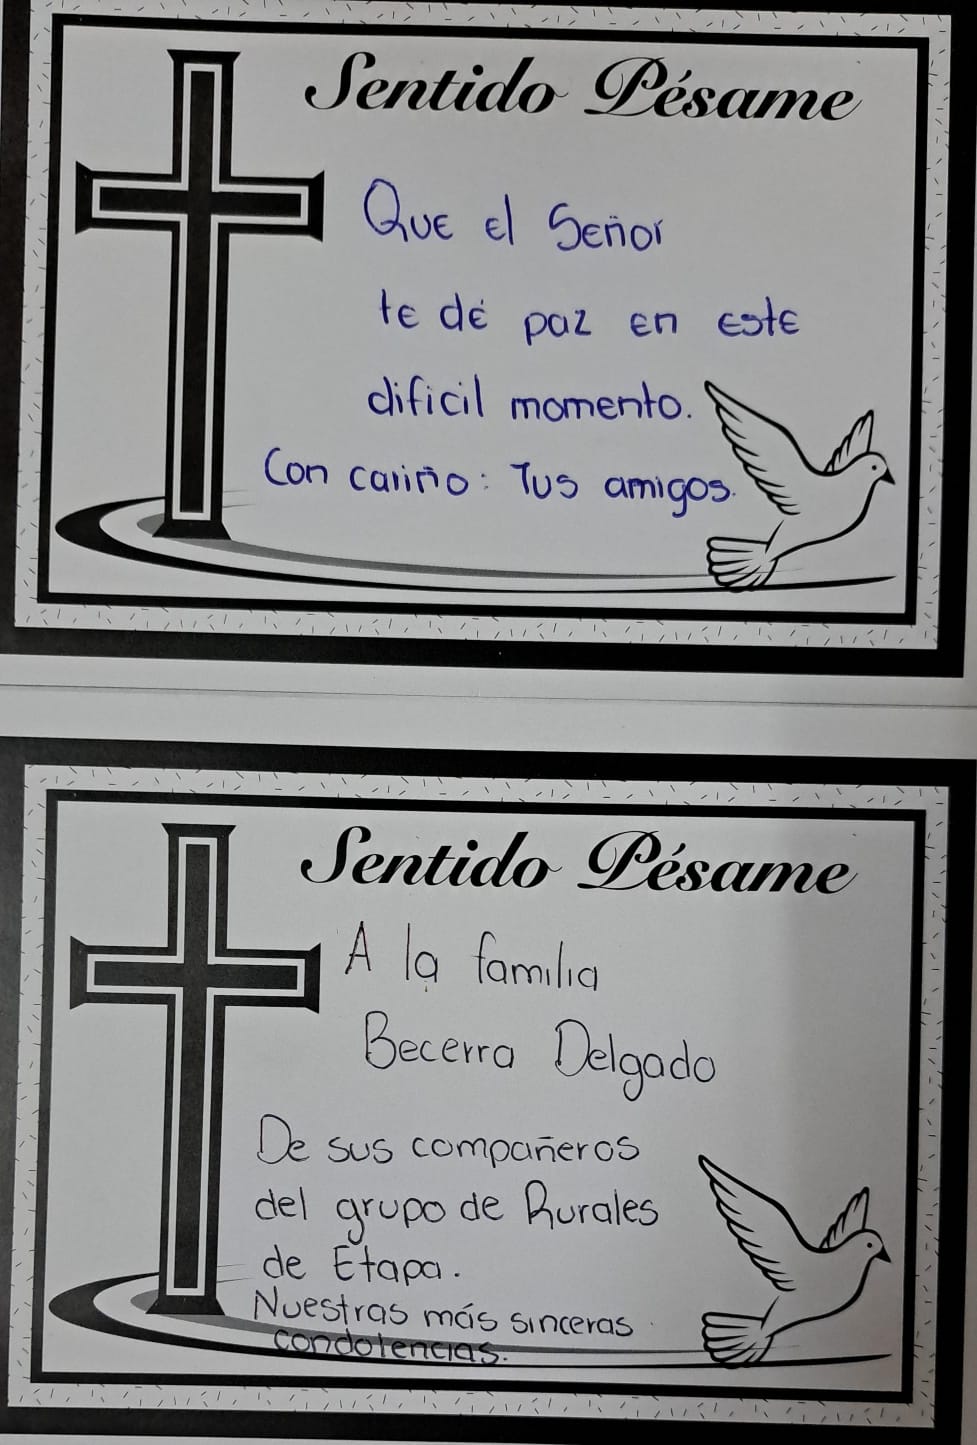 Sentido Pésame
Que el Señor
te dé paz en este
dificil momento.
Con cariño: Tus amigos.
Sentido Pésame
A la familia
Becerra Delgado
De sus compañeros
del grupo de Rurales
de Etapa.
Nuestras más sinceras
condolencias.